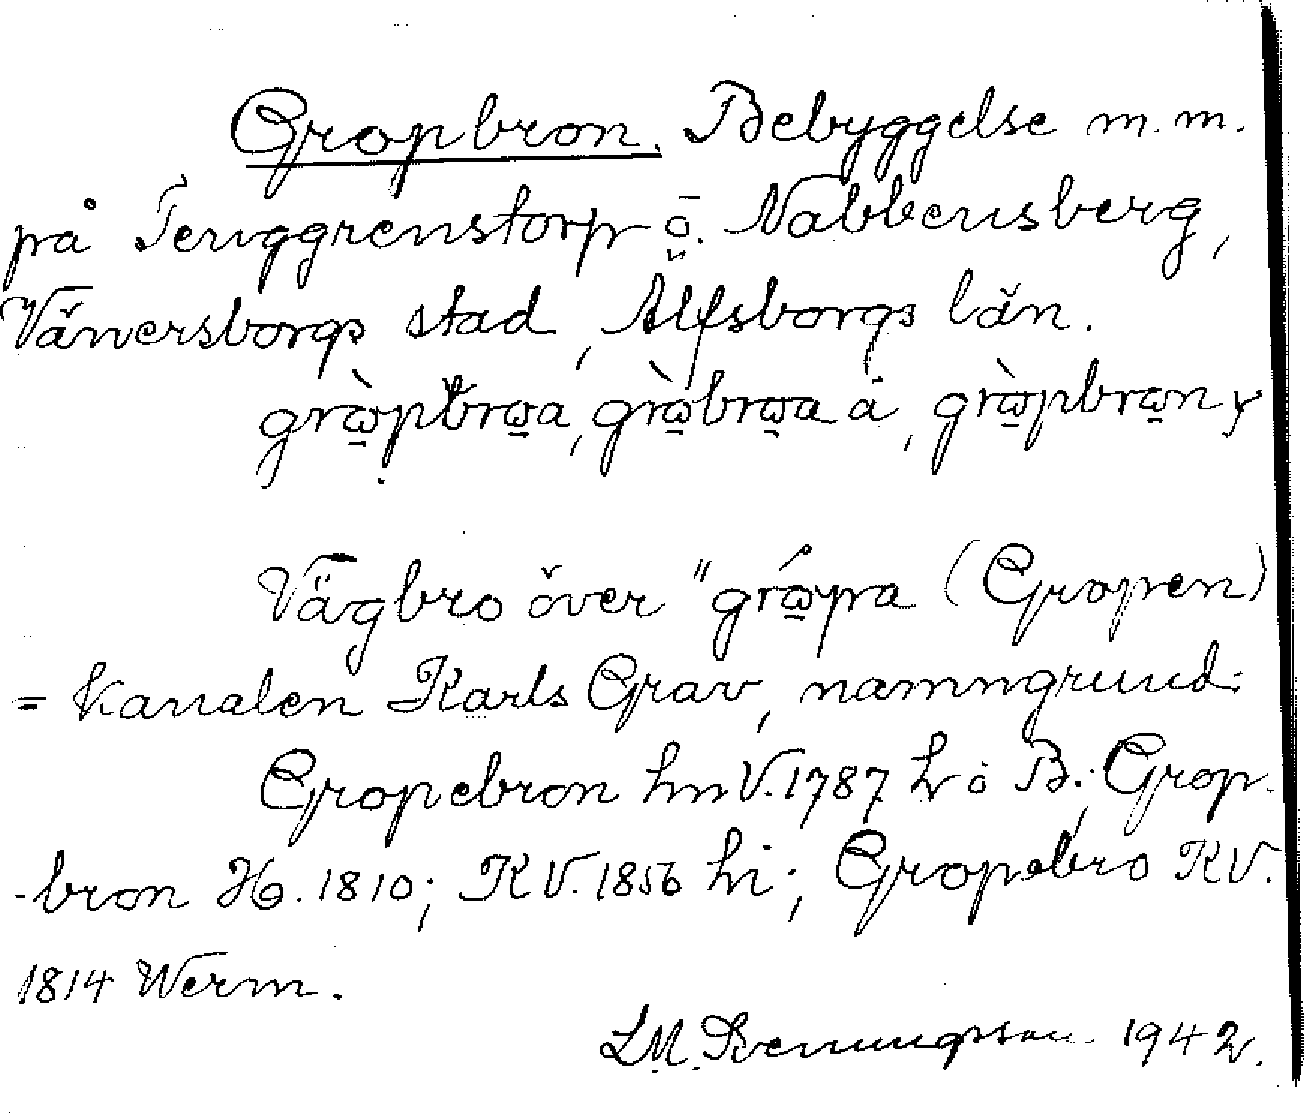 Gropbron. Bebyggelse m.m.
på Tenggrenstorp o. Nabbensberg,
Vänersborgs stad, Älfsborgs län.
grò̱pbro̱a, grò̱bro̱a å, grò̱pbro̱n
Vägbro över "gró̱pa (Gropen)
= Kanalen Karls Grav, namngrund.
Gropebron hmV. 1787 h o B.; Grop-
-bron H. 1810; KV. 1856 hi; Gropebro KV.
1814 Werm.
LM. Svenungsson 1942.